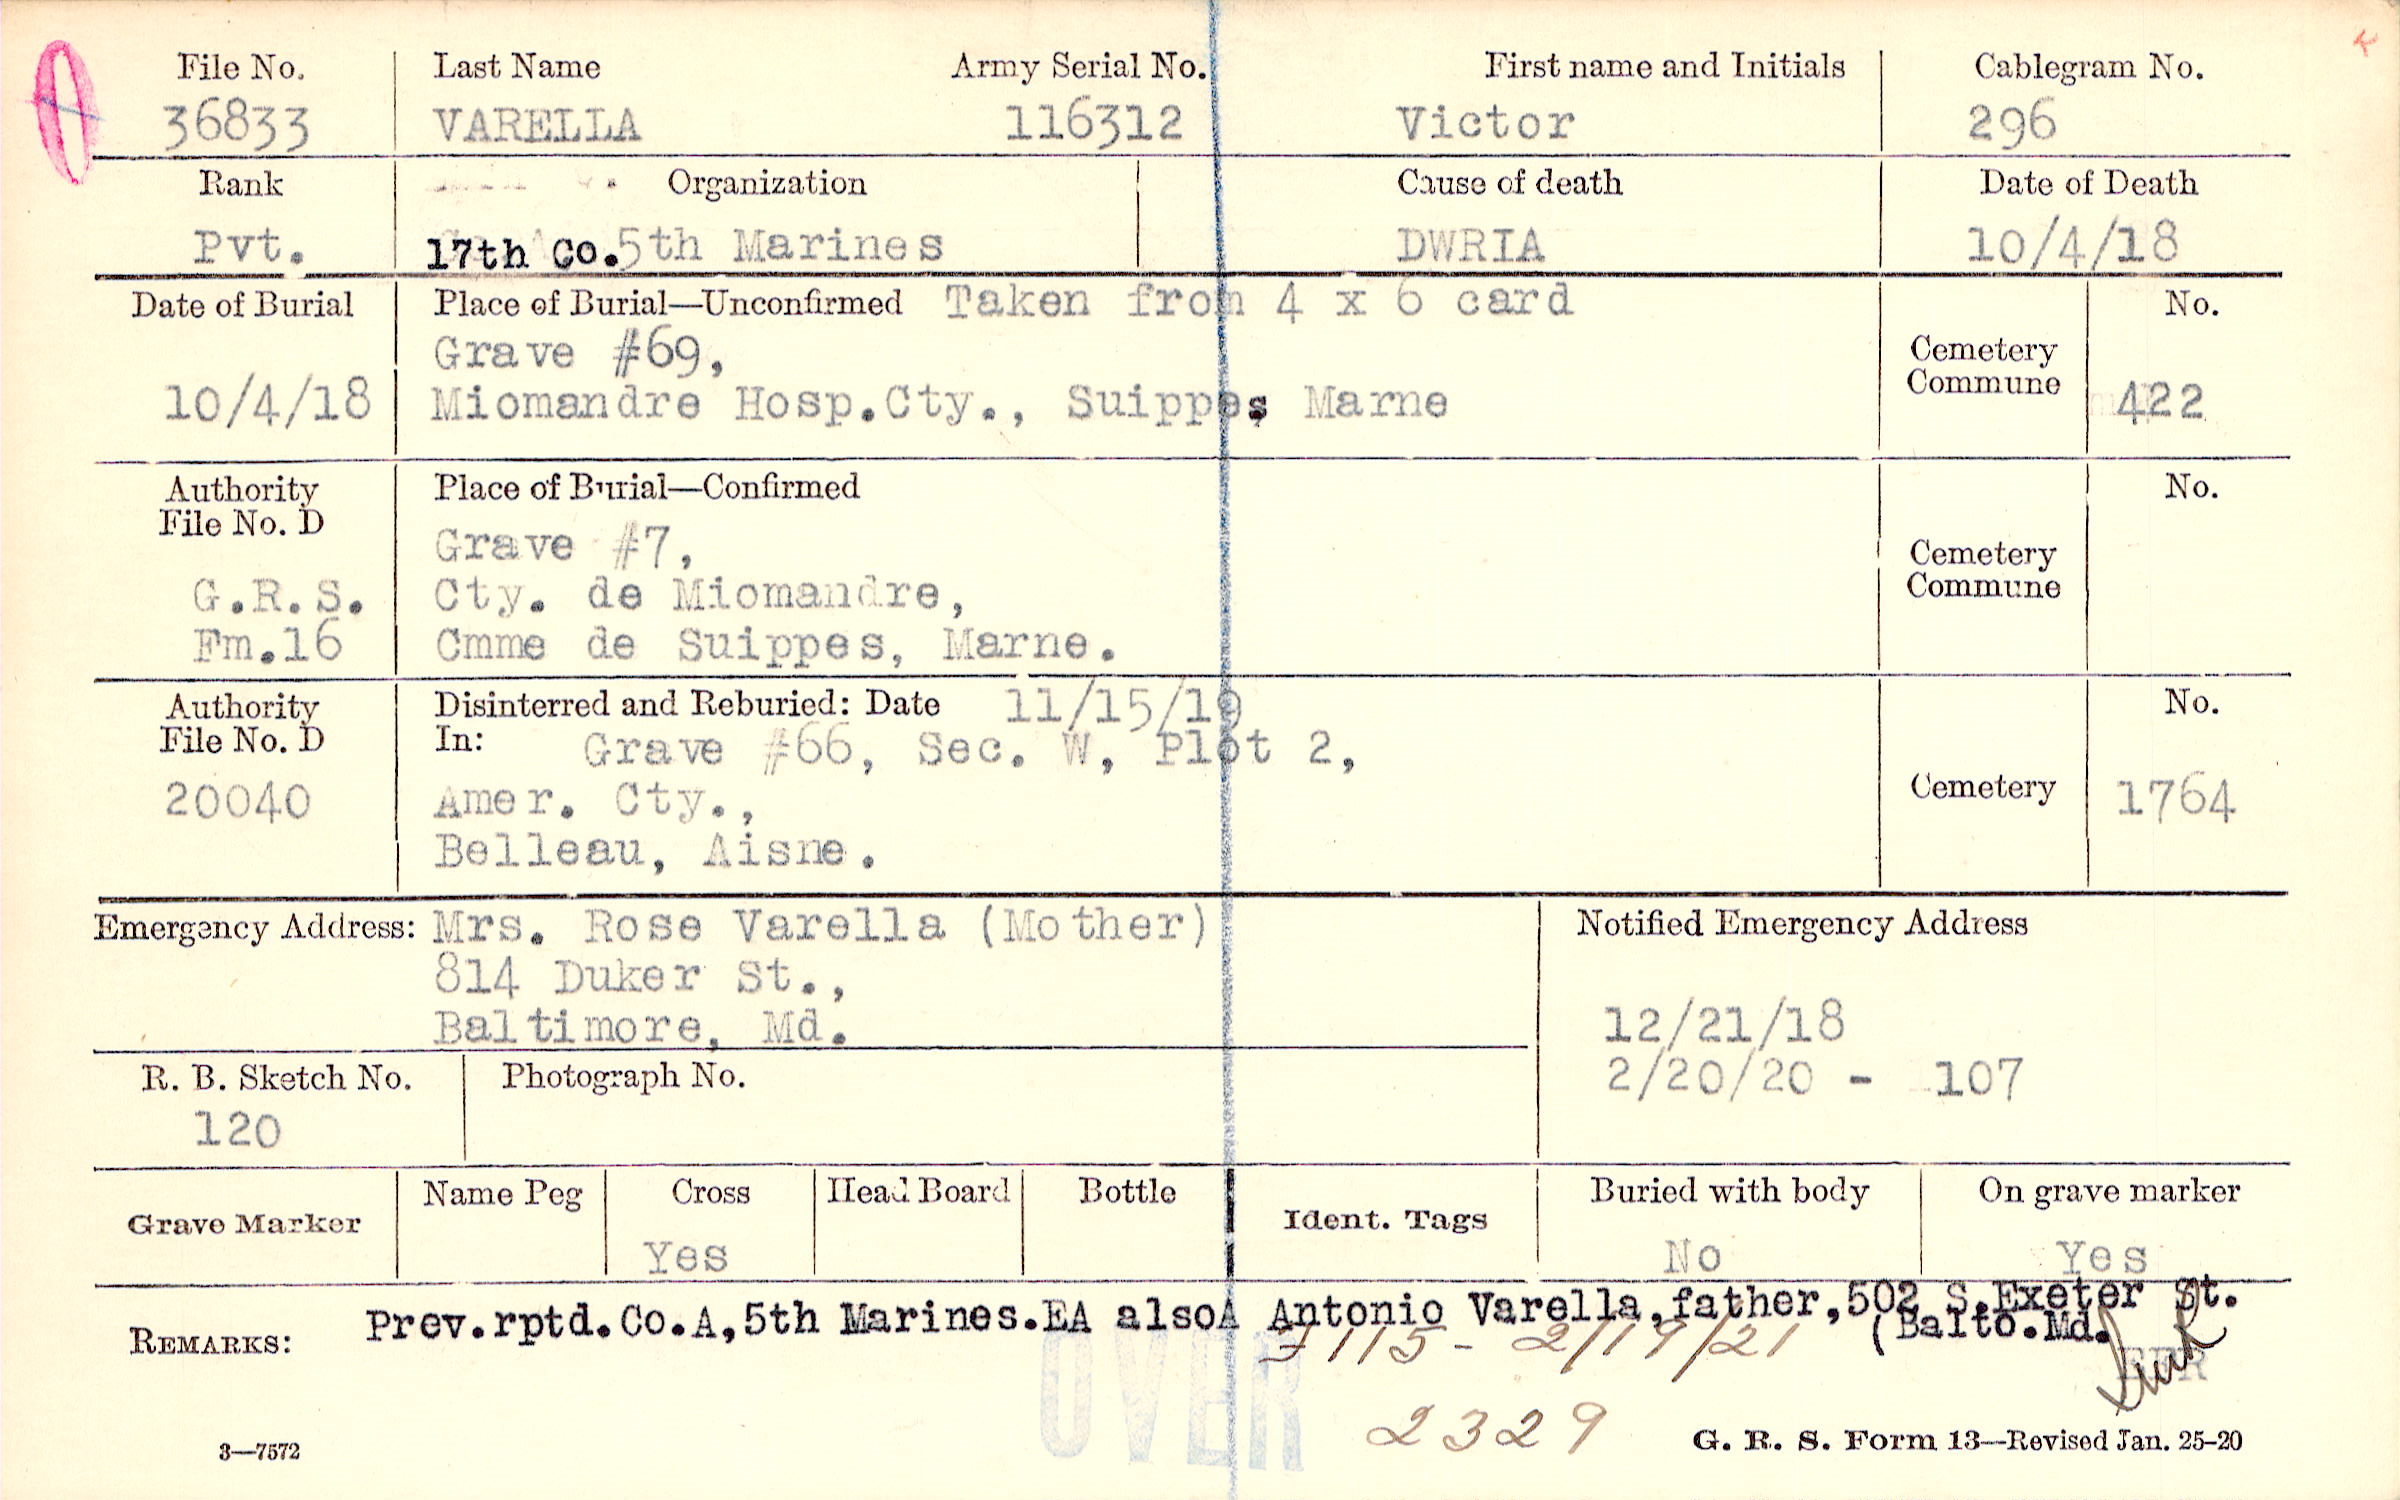 File No. Last Name Army Serial No. First name and Initials Cablegram No.
36833 VARELLA 116312 Victor 296
Rank Organization Cause of death Date of Death
Pvt. 17th Co. 5th Marines DWRIA 10/4/18
Date of Burial Place of Burial—Unconfirmed Taken from 4 x 6 card No.
Grave #69,
Cemetery
Commune
10/4/18 Miomandre Hosp.Cty., Suippes, Marne 422
Authority Place of Burial—Confirmed No.
File No. D
Grave #7,
Cemetery
Commune
G.R.S. Cty. de Miomandre,
Fm.16 Cmme de Suippes, Marne.
Authority Disinterred and Reburied: Date 11/15/19 No.
File No. D In: Grave #66, Sec. W, Plot 2,
20040 Amer. Cty., Cemetery 1764
Belleau, Aisne.
Emergency Address: Mrs. Rose Varella (Mother) Notified Emergency Address
814 Duker St.,
Baltimore, Md. 12/21/18
R. B. Sketch No. Photograph No. 2/20/20 - 107
120
Grave Marker Name Peg Cross Head Board Bottle Ident. Tags Buried with body On grave marker
Yes No Yes
REMARKS: Prev.rptd.Co.A,5th Marines.EA alsoA Antonio Varella,father,502 S.Exeter St.
(Balto.Md.
115 - 2/19/21
EFR
OVER
2329
3—7572 G. R. S. Form 13—Revised Jan. 25-20